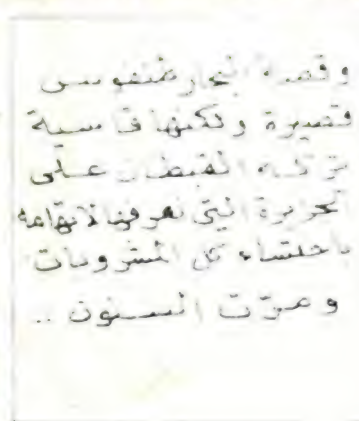 وقصة البحار طنفوسى
قصيرة ولكنها قاسية
تركه القبطان على
الجزيرة التى نعرفها لاتهامه
باحتساء كل المشروبات
ومرّت السنون ..